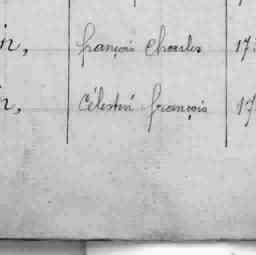 n, françois Charles 17
n, Célestin françois 17